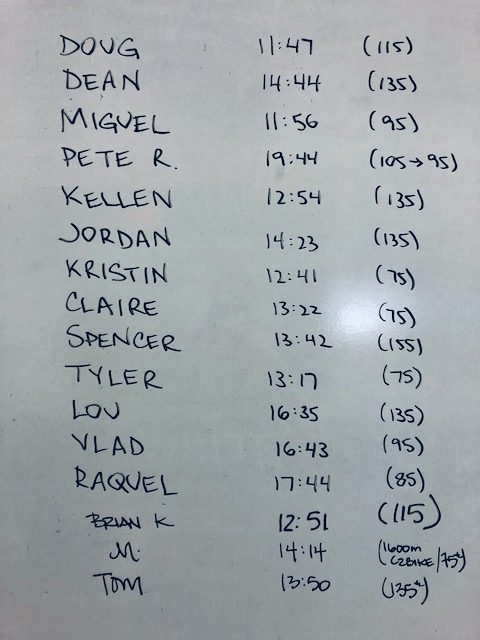 DOUG 11:47 (115)
DEAN 14:44 (135)
MIGUEL 11:56 (95)
PETE R. 19:44 (105→95)
KELLEN 12:54 (135)
JORDAN 14:23 (135)
KRISTIN 12:41 (75)
CLAIRE 13:22 (75)
SPENCER 13:42 (155)
TYLER 13:17 (75)
LOU 16:35 (135)
VLAD 16:43 (95)
RAQUEL 17:44 (85)
BRIAN K 12:51 (115)
M. 14:14 (1600m C2BIKE/75#)
TOM 13:50 (135#)